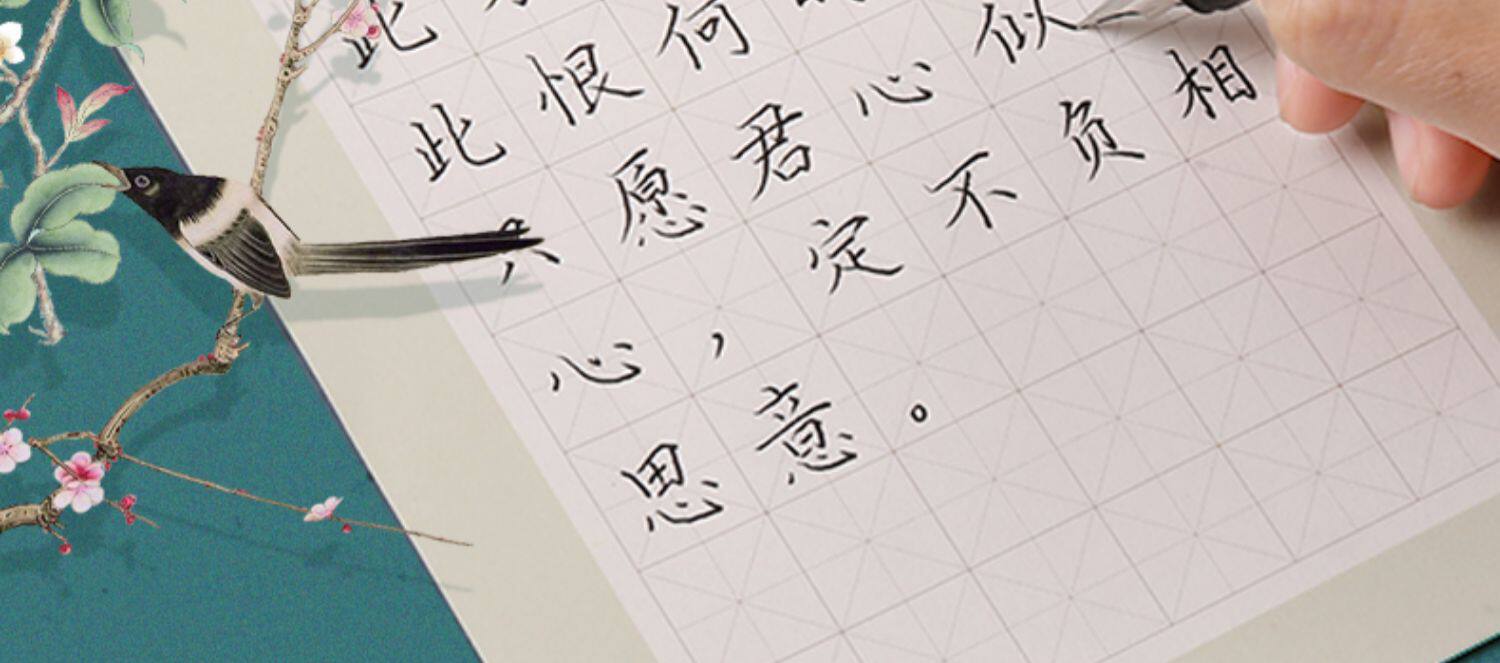 此
此恨何
只愿君心似
心，定不负相
思意。